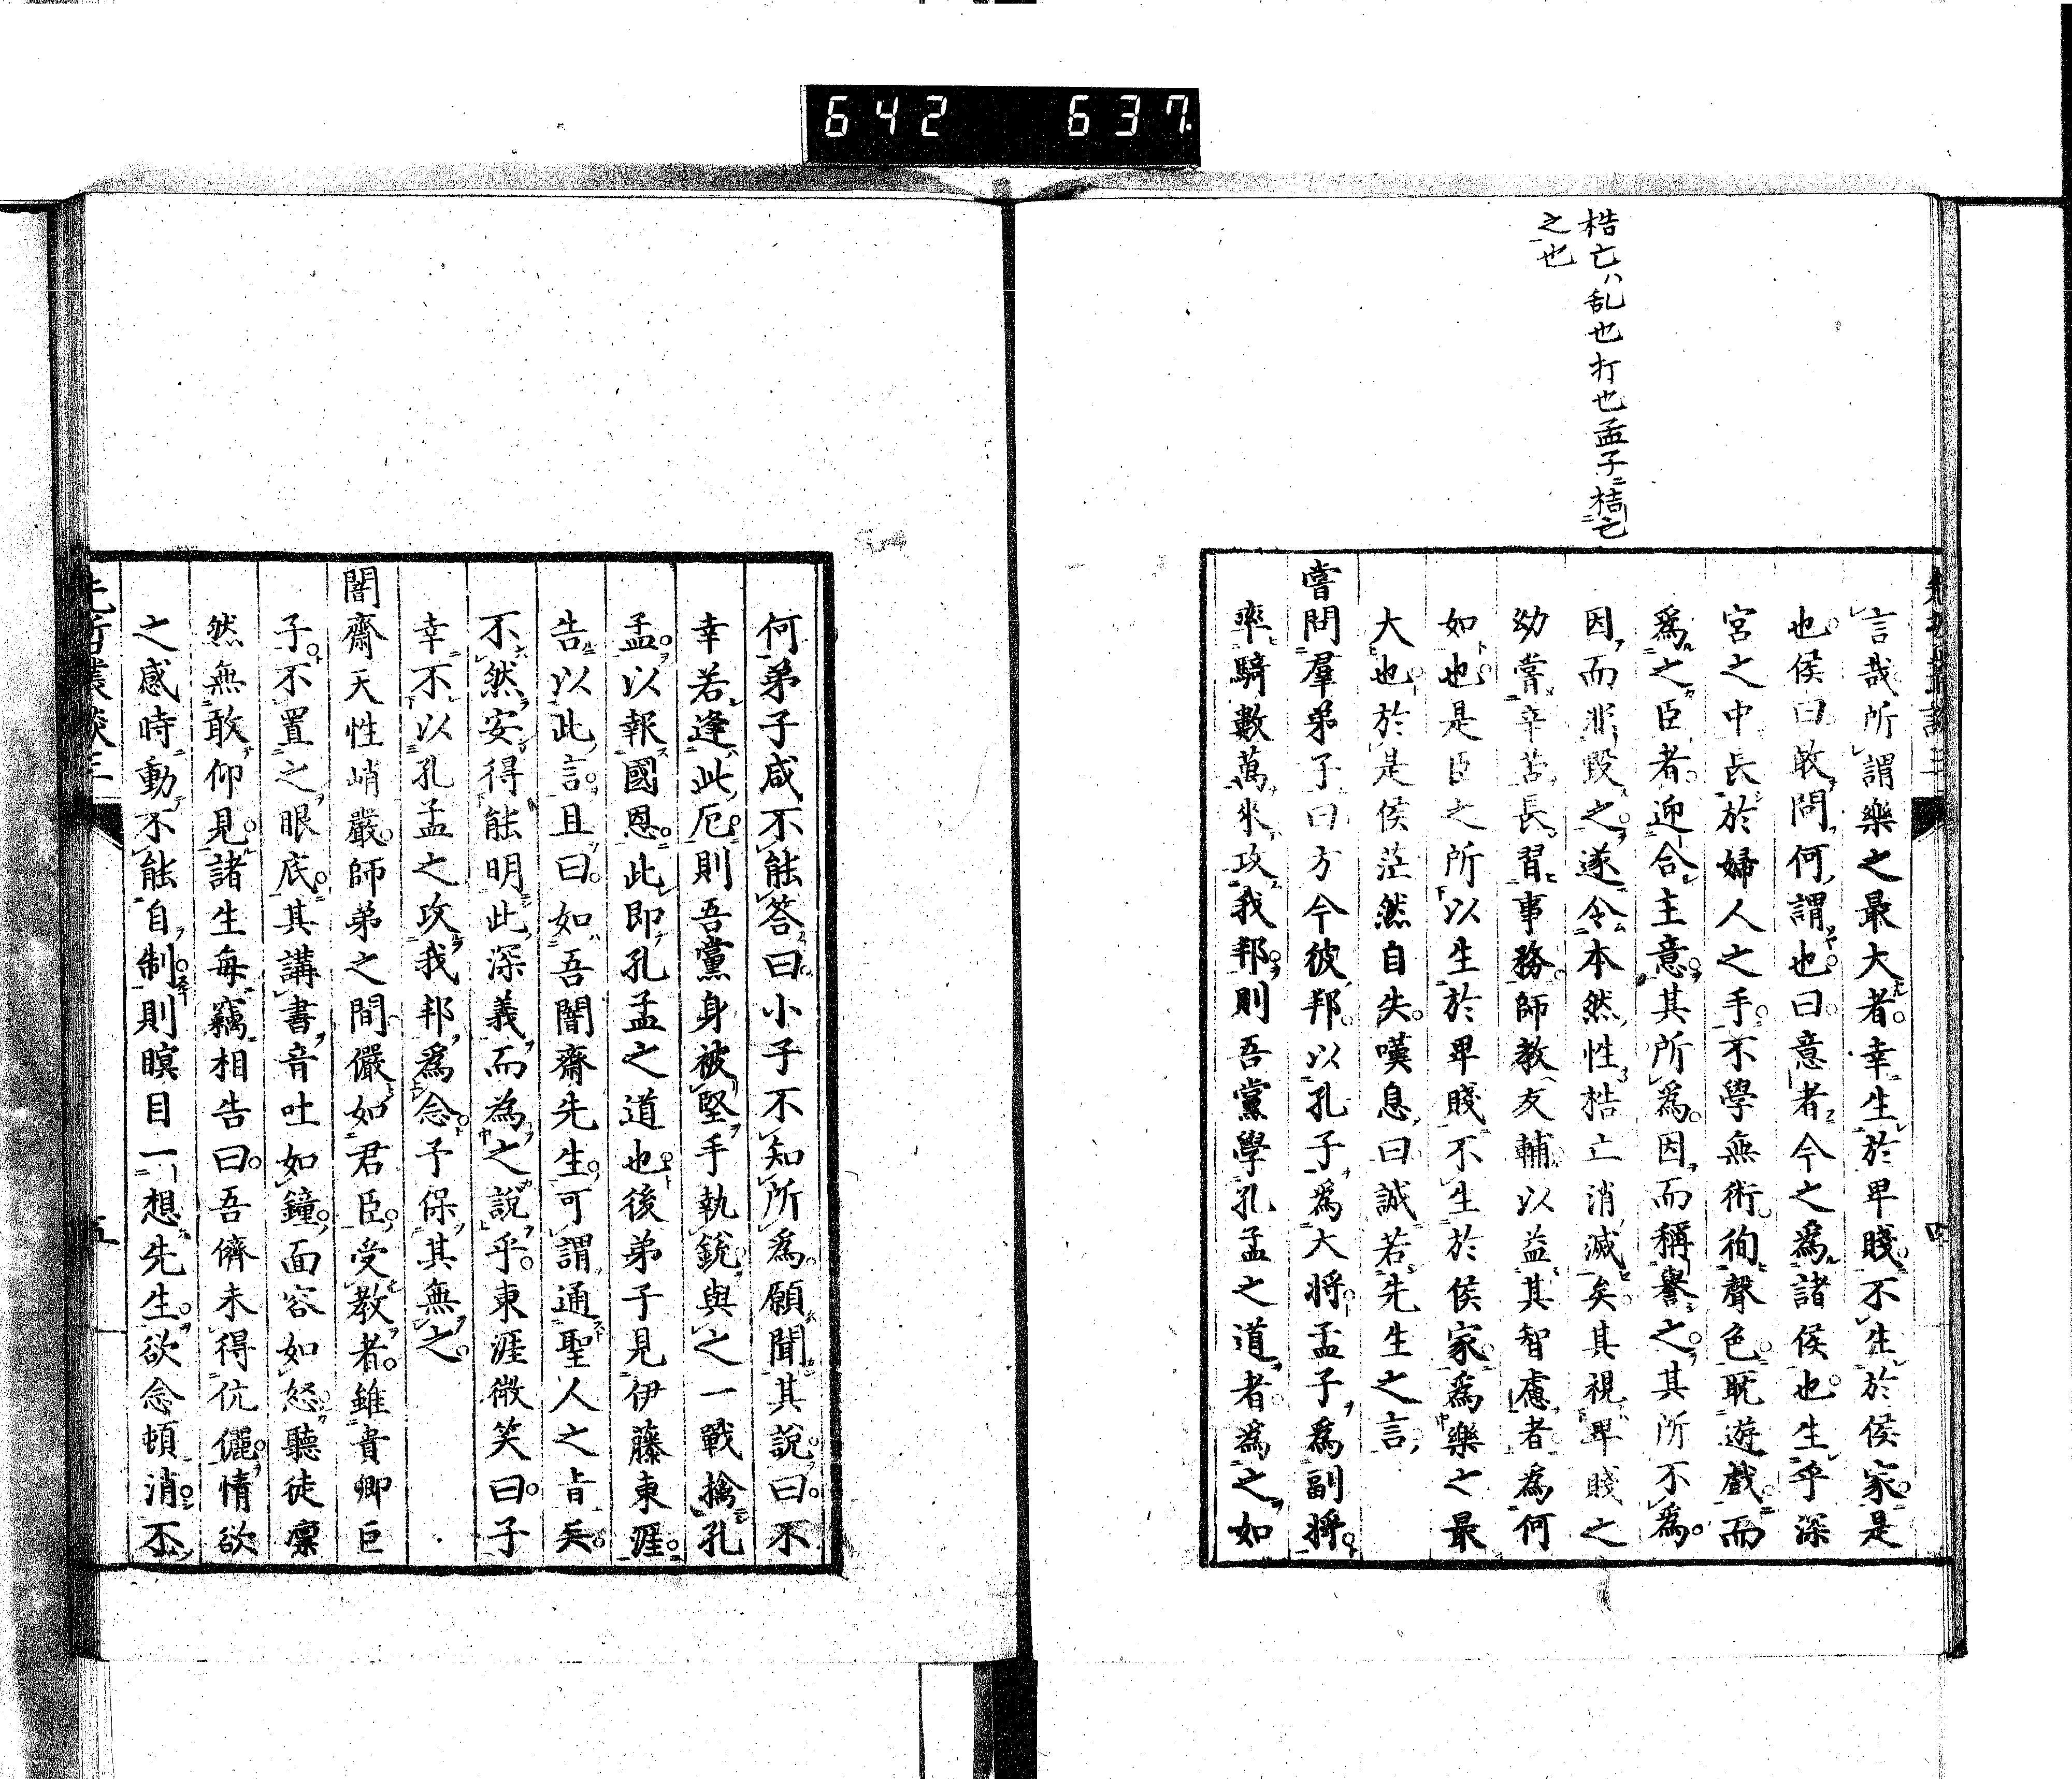 642 637
梏亡ハ乱也打也孟子ニ梏亡
之也
言哉所謂樂之最大者幸生於卑賤不生於侯家是
也侯曰敢問何謂也曰意者今之爲諸侯也生乎深
宮之中長於婦人之手不學無術徇聲色耽遊戲而
爲之臣者迎合主意其所爲因而稱譽之其所不爲
因而非毀之遂令本然性梏亡消滅矣其視卑賤之
幼嘗辛苦長習事務師教友輔以益其智慮者爲何
如也是臣之所以生於卑賤不生於侯家爲樂之最
大也於是侯茫然自失嘆息曰誠若先生之言
嘗問羣弟子曰方今彼邦以孔子爲大將孟子爲副將
率騎數萬來攻我邦則吾黨學孔孟之道者爲之如
何弟子咸不能答曰小子不知所爲願聞其說曰不
幸若逢此厄則吾黨身被堅手執銳與之一戰擒孔
孟以報國恩此即孔孟之道也後弟子見伊藤東涯
告以此言且曰如吾闇齋先生可謂通聖人之旨矣
不然安得能明此深義而為之說乎東涯微笑曰子
幸不以孔孟之攻我邦爲念予保其無之
闇齋天性峭嚴師弟之間儼如君臣受教者雖貴卿巨
子不置之眼底其講書音吐如鐘面容如怒聽徒凛
然無敢仰見諸生每竊相告曰吾儕未得伉儷情欲
之感時動不能自制則瞑目一想先生欲念頓消不
先哲叢談三
五
四